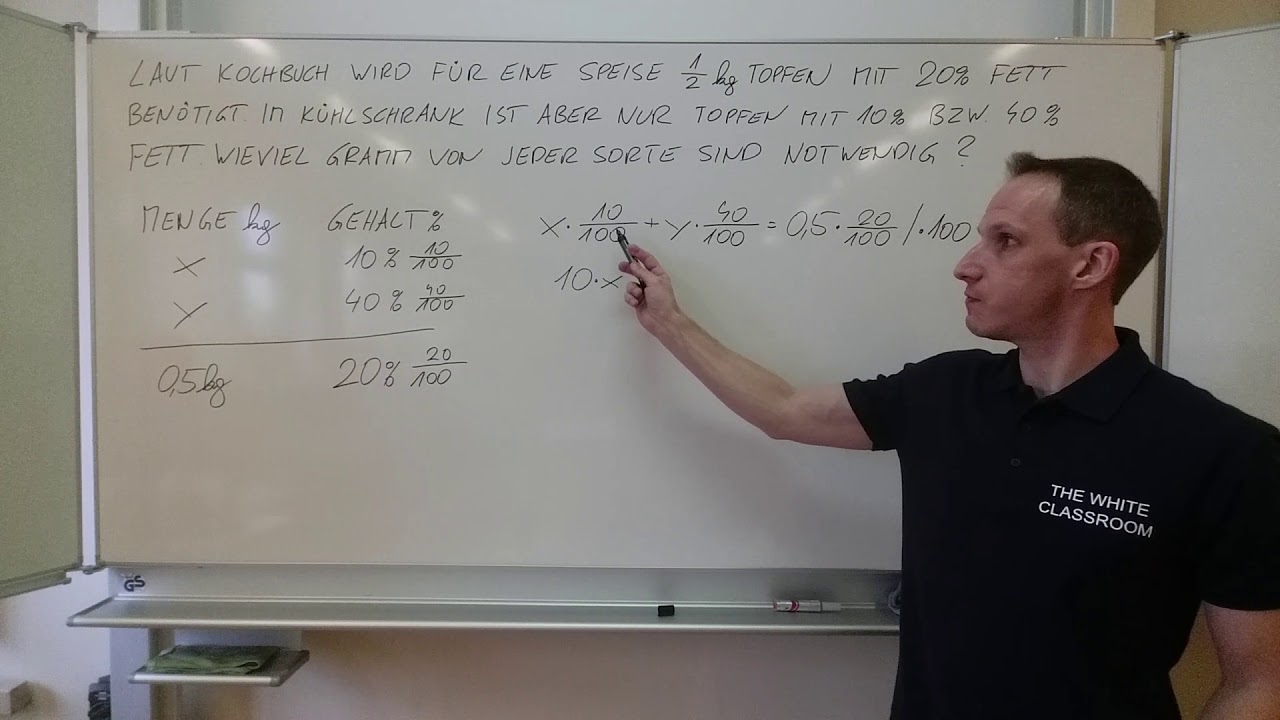 LAUT KOCHBUCH WIRD FÜR EINE SPEISE 1/2 kg TOPFEN MIT 20% FETT
BENÖTIGT. IM KÜHLSCHRANK IST ABER NUR TOPFEN MIT 10% BZW. 40%
FETT. WIEVIEL GRAMM VON JEDER SORTE SIND NOTWENDIG?
MENGE kg GEHALT %
x 10% 10/100
y 40% 40/100
0,5kg 20% 20/100
x · 10/100 + y · 40/100 = 0,5 · 20/100 / · 100
10 · x
THE WHITE
CLASSROOM
GS